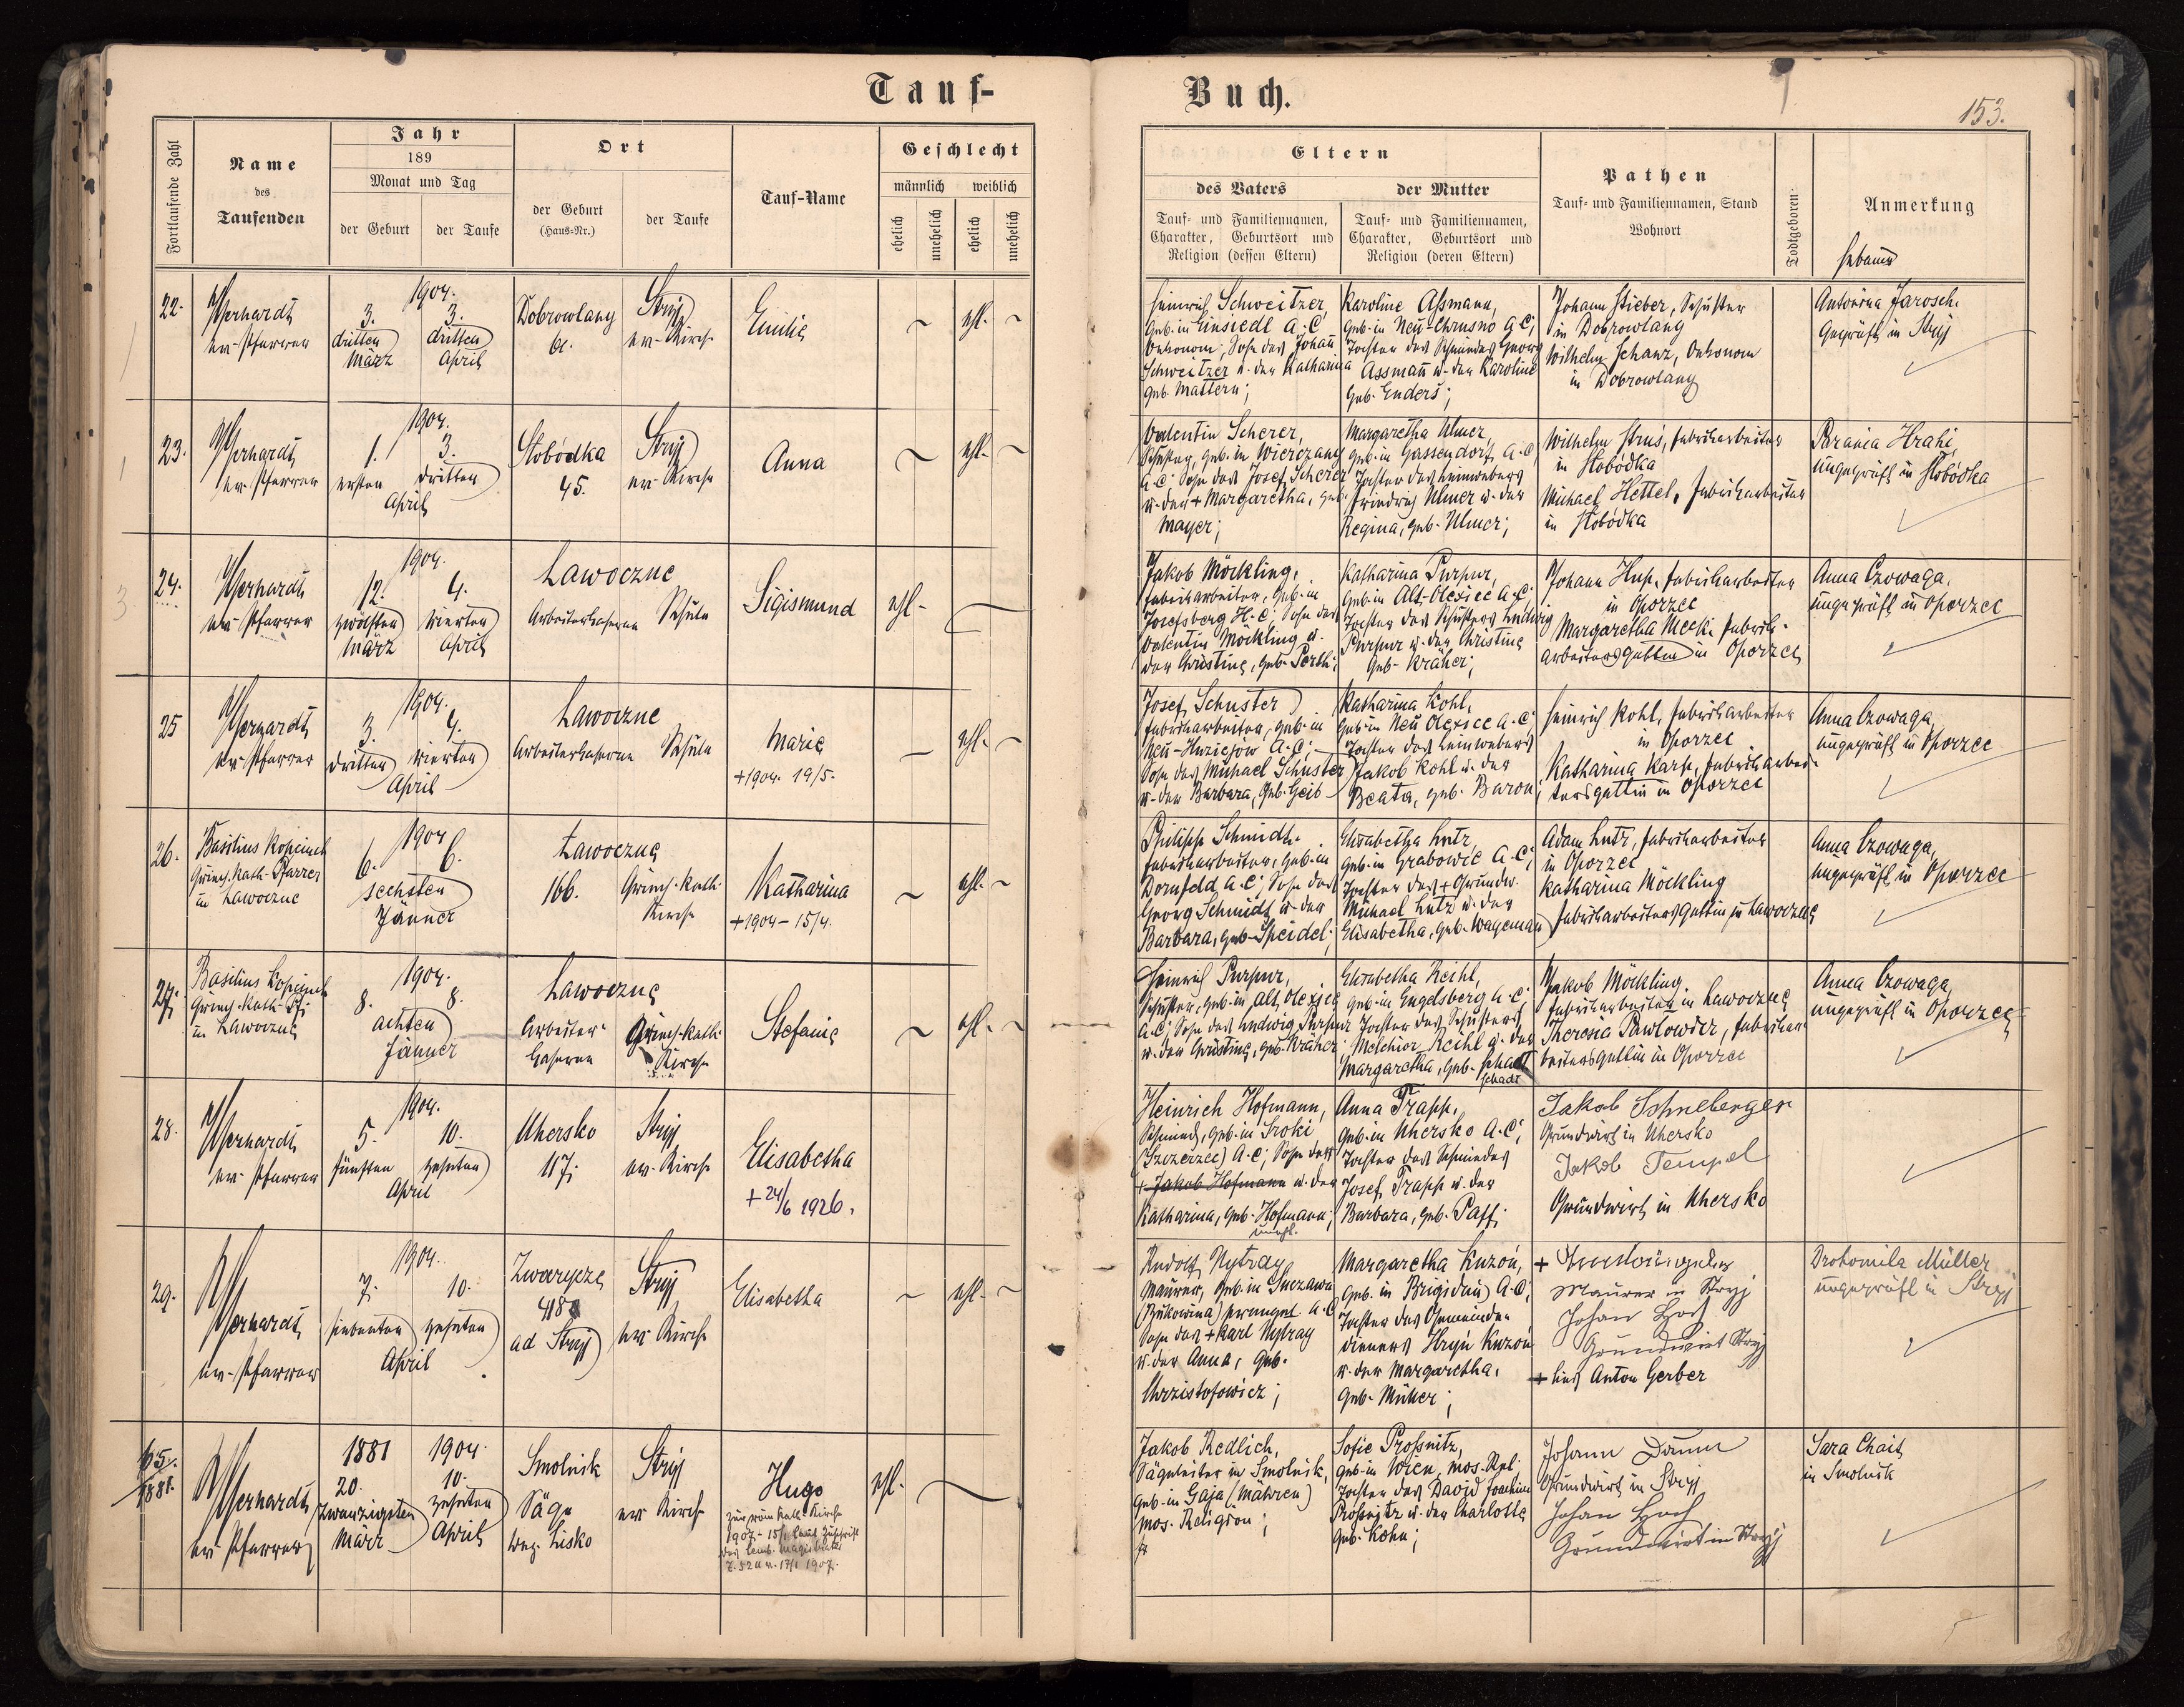 Tauf-
Fortlaufende Zahl
Name
des
Taufenden
Jahr
189
Monat und Tag
der Geburt
der Taufe
Ort
der Geburt
(Haus-Nr.)
der Taufe
Tauf-Name
Geschlecht
männlich
weiblich
ehelich
unehelich
ehelich
unehelich
22.
ev. Pfarrer
1904.
3. 3.
dritten dritten
März April
Dobrowlany
61.
Stryj
ev. Kirche
Emilie
ehl.
23.
ev. Pfarrer
1904.
1. 3.
ersten dritten
April
Słobódka
45.
Stryj
ev. Kirche
Anna
ehl.
24.
ev. Pfarrer
1904.
12. 4.
zwölften vierten
März April
Lawoczne
Arbeiterkaserne Schule
Sigismund
ehl.
25
ev. Pfarrer
1904.
3. 4.
dritten vierten
April
Lawoczne
Arbeiterkaserne Schule
Marie
+1904. 19/5.
ehl.
26.
Basilius Kopciuch
Griech. Kath. Pfarrer
in Lawoczne
1904
6. 6.
sechsten
Jänner
Ławoczne
166.
Griech. Kath.
Kirche
Katharina
+1904 - 15/4.
ehl.
27.
Basilius Kopciuch
Griech. Kath. Pfr
in Lawoczne
1904.
8. 8.
achten
Jänner
Lawoczne
Arbeiter-
kaserne
Griech. Kath.
Kirche
Stefanie
ehl.
28.
ev. Pfarrer
1904.
5. 10.
fünften zehnten
April
Uhersko
117.
Stryj
ev. Kirche
Elisabetha
+ 24/6 1926.
29.
ev. Pfarrer
1904.
7. 10.
siebenten zehnten
April
Zwarycze
418
ad Stryj
Stryj
ev. Kirche
Elisabetha
ehl.
65.
1881.
ev. Pfarrer
1881 1904.
20. 10.
zwanzigsten zehnten
März April
Smolnik
Säge
Bez. Lisko
Stryj
ev. Kirche
Hugo
zur röm. kath. Kirche
1907 - 15/1 laut Zuschrift
des Lemb. Magistrates
ehl.
Buch.
153.
Eltern
des Vaters
der Mutter
Tauf- und Familiennamen,
Charakter, Geburtsort und
Religion (dessen Eltern)
Tauf- und Familiennamen,
Charakter, Geburtsort und
Religion (deren Eltern)
Pathen
Tauf- und Familiennamen, Stand
Wohnort
Todtgeboren
Anmerkung
Hebamme
Heinrich Schweitzer,
geb. in Einsiedl A.C.
Oekonom; Sohn des Johann
Schweitzer u. der Katharina
geb. Mattern;
Karoline Aßmann,
geb. in Neu-Chrusno A.C;
Tochter des Schmiedes Georg
Assmann u. der Karoline
geb. Enders;
Johann Stieber, Schuster
in Dobrowlany
Wilhelm Schanz, Oekonom
in Dobrowlany
Antonina Jarosch.
Geprüft in Stryj
Valentin Scherer,
Schuster, geb. in Wierczany
A.C. Sohn des Josef Scherer
u. der + Margaretha, geb.
Mayer;
Margaretha Ulmer,
geb. in Gassendorf, A.C.
Tochter des Leinwebers
Friedrich Ulmer u. der
Regina, geb. Ulmer;
Wilhelm Struś, Fabriksarbeiter
in Słobódka
Michael Hettel, Fabriksarbeiter
in Słobódka
Parania Hrahi,
ungeprüft in Słobódka
Jakob Möckling,
Fabriksarbeiter, geb. in
Josefsberg H.C; Sohn des
Valentin Möckling u.
der Christine, geb.
Katharina Purpur,
geb. in Alt-Olexice A.C;
Tochter des Schusters Ludwig
Purpur u. der Christine
geb. Kräher;
Johann Hup, Fabriksarbeiter
in Oporzec
Margaretha Meck, Fabriks-
arbeitersgattin in Oporzec
Anna Czowaga,
ungeprüft in Oporzec
Josef Schuster
Fabriksarbeiter, geb. in
A.C;
Sohn des Michael Schuster
u. der Barbara, geb. Geib
Katharina Kohl,
geb. in Neu Olexice A.C.
Tochter des Leinwebers
Jakob Kohl u. der
Beata, geb. Baron;
Heinrich Kohl, Fabriksarbeiter
in Oporzec
Katharina Karp, Fabriksarbei-
tersgattin in Oporzec
Anna Czowaga,
ungeprüft in Oporzec
Philipp Schmidt,
Fabriksarbeiter, geb. in
Dornfeld A.C; Sohn des
Georg Schmidt u. der
Barbara, geb. Speidel;
Elisabetha Lutz,
geb. in Grabowic A.C;
Tochter des + Grundw.
Michael Lutz u. der
Elisabetha, geb. Wageman
Adam Lutz, Fabriksarbeiter
in Oporzec
Katharina Möckling
Fabriksarbeitersgattin in Lawoczne
Anna Czowaga,
ungeprüft in Oporzec
Heinrich Purpur,
Schuster, geb. in Alt Olexice
A.C; Sohn des Ludwig Purpur
u. der Christine, geb. Kräher;
Elisabetha Reihl,
geb. in Engelsberg A.C;
Tochter des Schusters
Melchior Reihl u. der
Margaretha, geb. Schadt
Schadt
Jakob Möckling,
Fabriksarbeiter in Lawoczne
Theresia Pawlowicz, Fabriksar-
beitersgattin in Oporzec
Anna Czowaga,
ungeprüft in Oporzec
Heinrich Hofmann,
Schmied, geb. in Sroki
(Szczerzec) A.C; Sohn des
+ Jakob Hofmann u. der
Katharina, geb. Hofmann;
unehl.
Anna Trapp,
geb. in Uhersko A.C;
Tochter des Schmiedes
Josef Trapp u. der
Barbara, geb. Paff;
Jakob Schneberger
Grundwirt in Uhersko
Jakob Tempel
Grundwirt in Uhersko
Rudolf Nytray
Maurer, geb. in Suczawa
(Bukowina) A.C.
Sohn des + Karl Nytray
u. der Anna, geb.
Chrzistofowicz;
Margaretha Kuzon,
geb. in Brigidau A.C;
Tochter des Gemeinde-
dieners Hryń Kuzon
u. der Margaretha,
geb. Müller;
Maurer in Stryj
Johan Hoch
Grundwirt Stryj
+ lies Anton Gerber
Drohomila Müller
ungeprüft in Stryj
Jakob Redlich,
Sägeleiter in Smolnik,
geb. in Gaja (Mähren)
mos. Religion;
Sofie Proßnitz,
geb. in Wien, mos. Rel.
Tochter des David Joachim
Proßnitz u. der Charlotte
geb. Kohn;
Johann Daum
Grundwirt in Stryj
Johan Hoch
Grundwirt in Stryj
Sara Chait
in Smolnik